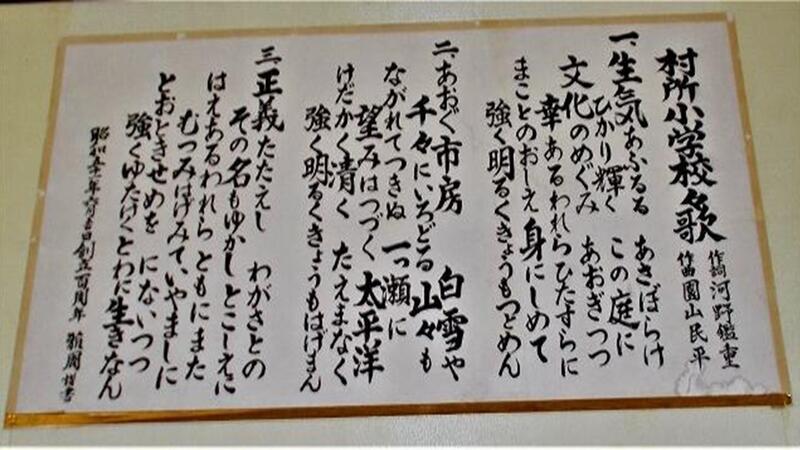 村所小学校々歌
作詞 河野鑑重
作曲 園山民平
一、生気あふるる あさぼらけ
ひかり輝く この庭に
文化のめぐみ あおぎつつ
幸あるわれらひたすらに
まことのおしえ身にしめて
強く明るくきょうもつとめん
二、あおぐ市房 白雪や
千々にいろどる山々も
ながれてつきぬ 一つ瀬に
望みはつづく 太平洋
けだかく清く たえまなく
強く明るくきょうもはげまん
三、正義たたえし わがさとの
その名もゆかし とこしえに
はえあるわれら ともにまた
むつみはげみて、いやましに
とおときせめを にないつつ
強くゆたけくとわに生きなん
創立百周年